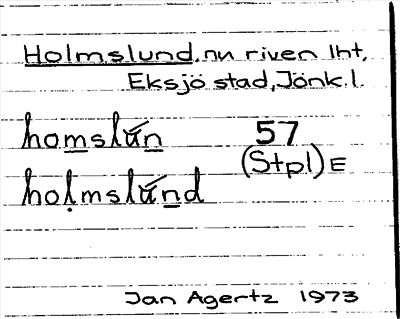 Holmslund, nu riven lht,
Eksjö stad, Jönk.l.
homslún 57
hoḷmslúnd (Stpl) E
Jan Agertz 1973